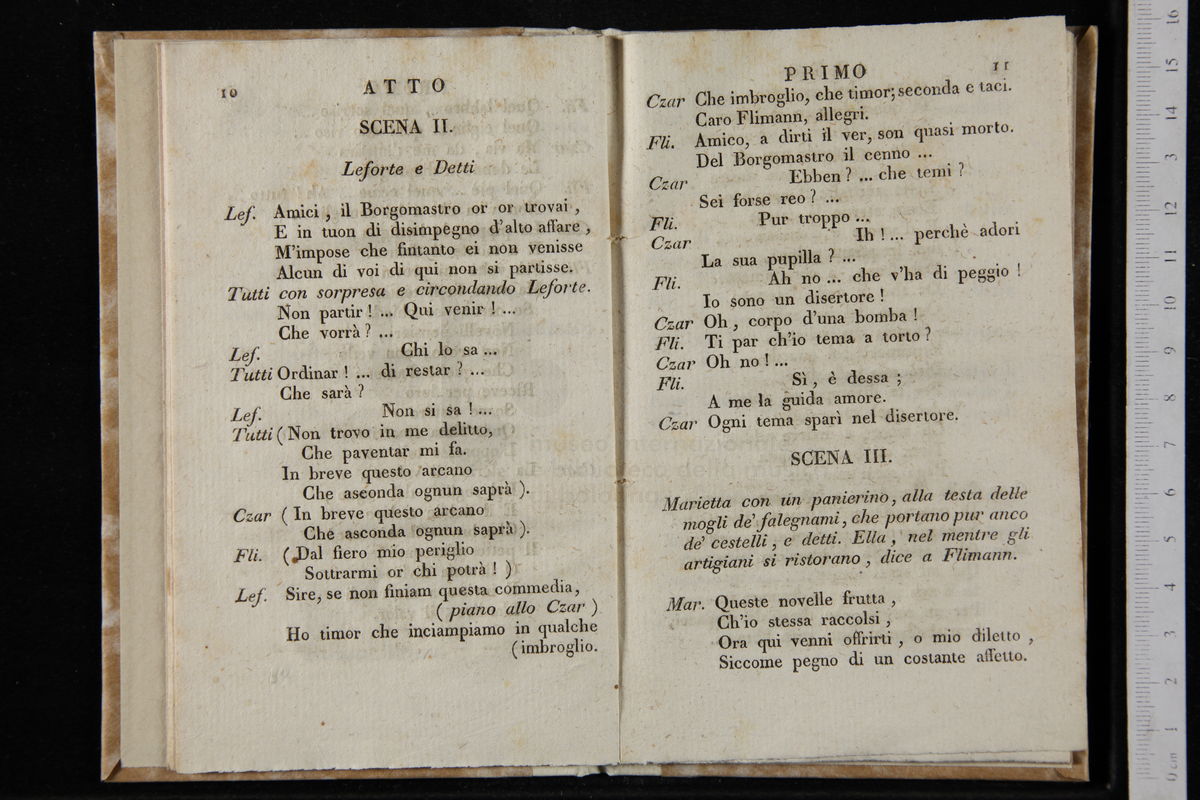 10
ATTO
SCENA II.
Leforte e Detti
Lef. Amici, il Borgomastro or or trovai,
E in tuon di disimpegno d'alto affare,
M'impose che fintanto ei non venisse
Alcun di voi di qui non si partisse.
Tutti con sorpresa e circondando Leforte.
Non partir! ... Qui venir! ...
Che vorrà? ...
Lef. Chi lo sa ...
Tutti Ordinar! ... di restar? ...
Che sarà?
Lef. Non si sa! ...
Tutti (Non trovo in me delitto,
Che paventar mi fa.
In breve questo arcano
Che asconda ognun saprà).
Czar (In breve questo arcano
Che asconda ognun saprà).
Fli. (Dal fiero mio periglio
Sottrarmi or chi potrà!)
Lef. Sire, se non finiam questa commedia,
(piano allo Czar)
Ho timor che inciampiamo in qualche
(imbroglio.
PRIMO
11
Czar Che imbroglio, che timor; seconda e taci.
Caro Flimann, allegri.
Fli. Amico, a dirti il ver, son quasi morto.
Del Borgomastro il cenno ...
Czar Ebben? ... che temi?
Sei forse reo? ...
Fli. Pur troppo ...
Czar Ih! ... perchè adori
La sua pupilla? ...
Fli. Ah no ... che v'ha di peggio!
Io sono un disertore!
Czar Oh, corpo d'una bomba!
Fli. Ti par ch'io tema a torto?
Czar Oh no! ...
Fli. Sì, è dessa;
A me la guida amore.
Czar Ogni tema sparì nel disertore.
SCENA III.
Marietta con un panierino, alla testa delle
mogli de' falegnami, che portano pur anco
de' cestelli, e detti. Ella, nel mentre gli
artigiani si ristorano, dice a Flimann.
Mar. Queste novelle frutta,
Ch'io stessa raccolsi,
Ora qui venni offrirti, o mio diletto,
Siccome pegno di un costante affetto.
0 cm 1 2 3 4 5 6 7 8 9 10 11 12 13 14 15 16